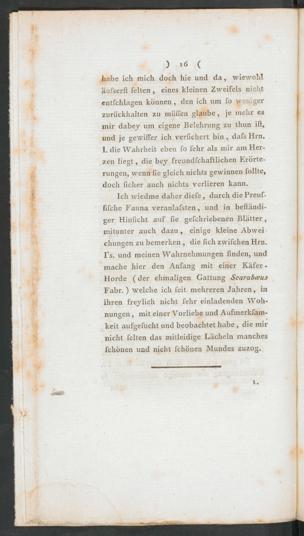 ) 16 (
habe ich mich doch hie und da, wiewohl
äuſserſt ſelten, eines kleinen Zweifels nicht
entſchlagen können, den ich um ſo weniger
zurückhalten zu müſſen glaube, je mehr es
mir dabey um eigene Belehrung zu thun iſt,
und je gewiſſer ich verſichert bin, daſs Hrn.
I. die Wahrheit eben ſo ſehr als mir am Her-
zen liegt, die bey freundſchaftlichen Erörte-
rungen, wenn ſie gleich nichts gewinnen ſollte,
doch ſicher auch nichts verlieren kann.
Ich wiedme daher dieſe, durch die Preuſ-
ſiſche Fauna veranlaſsten, und in beſtändi-
ger Hinſicht auf ſie geſchriebenen Blätter,
mitunter auch dazu, einige kleine Abwei-
chungen zu bemerken, die ſich zwiſchen Hrn.
I's. und meinen Wahrnehmungen finden, und
mache hier den Anfang mit einer Käfer-
Horde (der ehmaligen Gattung Scarabaeus
Fabr.) welche ich ſeit mehreren Jahren, in
ihren freylich nicht ſehr einladenden Woh-
nungen, mit einer Vorliebe und Aufmerkſam-
keit aufgeſucht und beobachtet habe, die mir
nicht ſelten das mitleidige Lächeln manches
ſchönen und nicht ſchönen Mundes zuzog.
1.